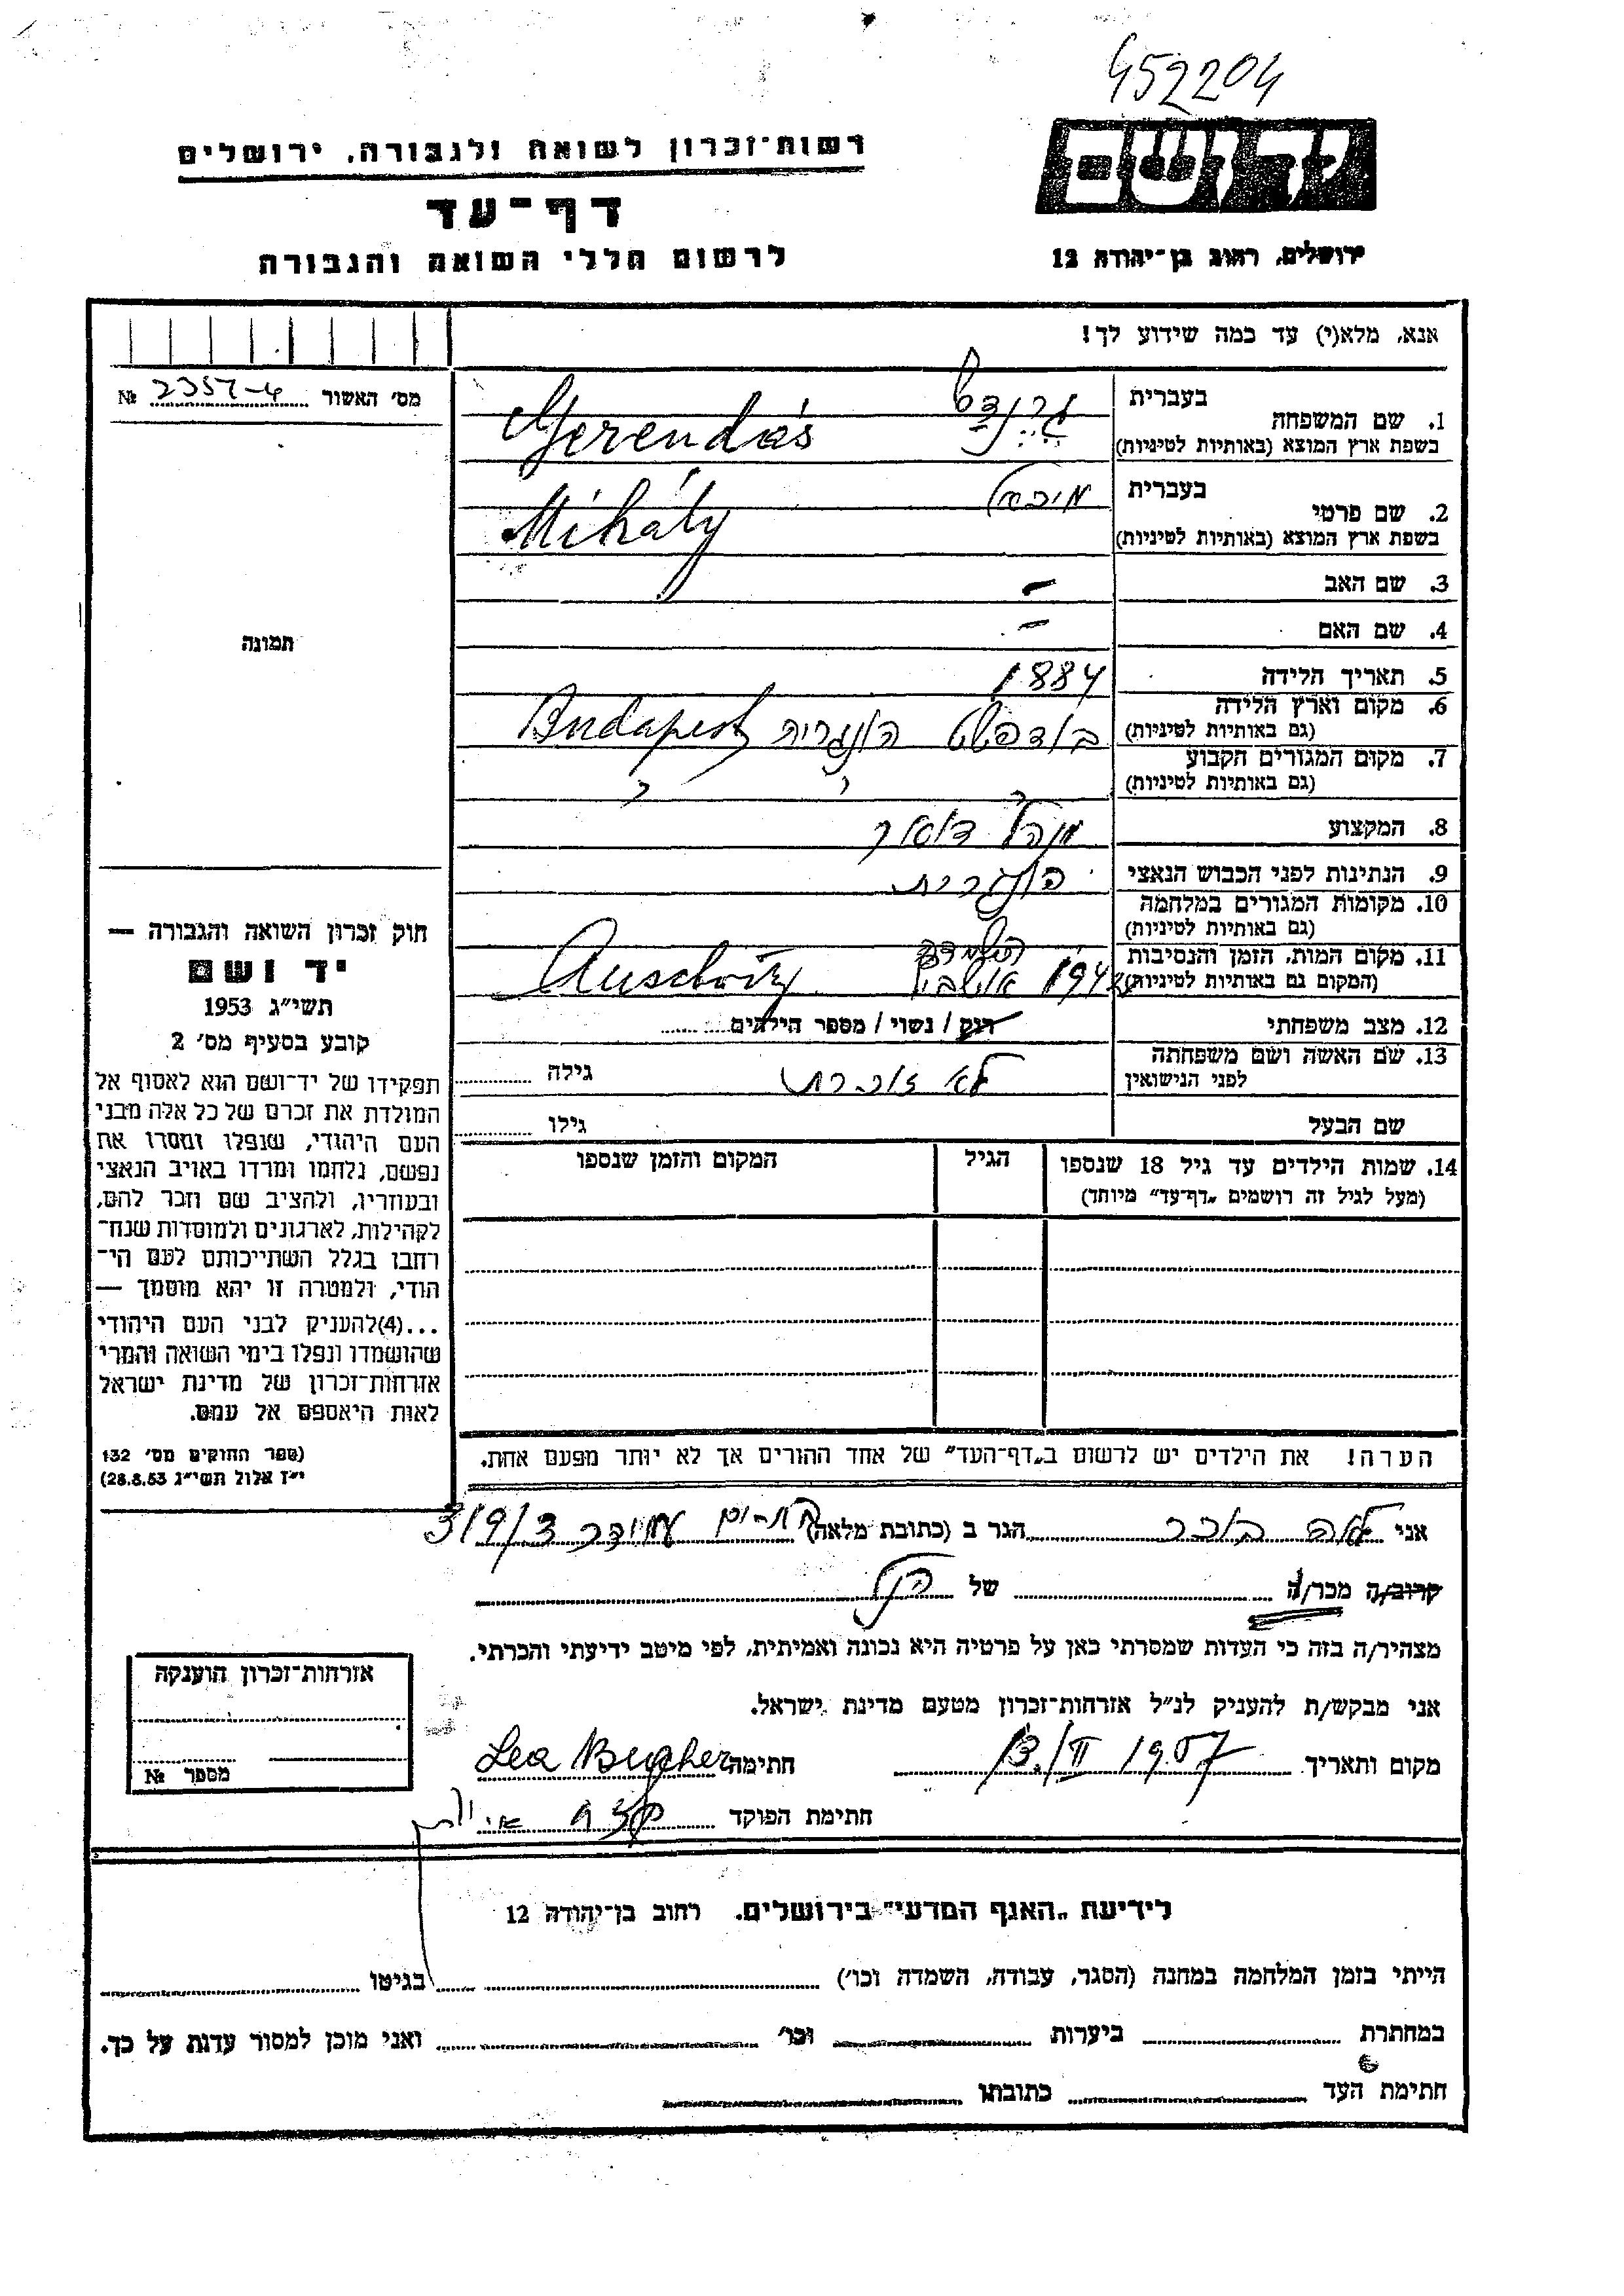 452204
יד ושם
רשות־זכרון לשואה ולגבורה, ירושלים
דף־עד
לרשום חללי השואה והגבורה
ירושלים, רחוב בן־יהודה 12
אנא, מלא(י) עד כמה שידוע לך!
מס׳ האשור № 2357-4
תמונה
1. שם המשפחה
בעברית גרנדש
בשפת ארץ המוצא (באותיות לטיניות) Gerendás
2. שם פרטי
בעברית מיכאל
בשפת ארץ המוצא (באותיות לטיניות) Mihály
3. שם האב –
4. שם האם –
5. תאריך הלידה 1884
6. מקום וארץ הלידה
(גם באותיות לטיניות) בודפשט הונגריה Budapest
7. מקום המגורים הקבוע
(גם באותיות לטיניות) " " "
8. המקצוע מנהל דואר
9. הנתינות לפני הכבוש הנאצי הונגרית
10. מקומות המגורים במלחמה
(גם באותיות לטיניות)
11. מקום המות, הזמן והנסיבות
(המקום גם באותיות לטיניות) 1944 Auschwitz
12. מצב משפחתי רוק / נשוי / מספר הילדים
13. שם האשה ושם משפחתה
לפני הנישואין לא זוכרת גילה
שם הבעל גילו
14. שמות הילדים עד גיל 18 שנספו
(מעל לגיל זה רושמים „דף־עד״ מיוחד)
הגיל
המקום והזמן שנספו
חוק זכרון השואה והגבורה —
יד ושם
תשי״ג 1953
קובע בסעיף מס׳ 2
תפקידו של יד־ושם הוא לאסוף אל
המולדת את זכרם של כל אלה מבני
העם היהודי, שנפלו ומסרו את
נפשם, נלחמו ומרדו באויב הנאצי
ובעוזריו, ולהציב שם וזכר להם,
לקהילות, לארגונים ולמוסדות שנח־
רבו בגלל השתייכותם לעם הי־
הודי, ולמטרה זו יהא מוסמך —
...(4) להעניק לבני העם היהודי
שהושמדו ונפלו בימי השואה והמרי
אזרחות־זכרון של מדינת ישראל
לאות היאספם אל עמם.
(ספר החוקים מס׳ 132
י״ז אלול תשי״ג 28.8.53)
הערה! את הילדים יש לרשום ב„דף־העד״ של אחד ההורים אך לא יותר מפעם אחת.
אני לאה בוכר הגר ב (כתובת מלאה) 3/9/3
קרוב/ה מכר/ה של הנ״ל
מצהיר/ה בזה כי העדות שמסרתי כאן על פרטיה היא נכונה ואמיתית, לפי מיטב ידיעתי והכרתי.
אני מבקש/ת להעניק לנ״ל אזרחות־זכרון מטעם מדינת ישראל.
מקום ותאריך 13./II 1957 חתימה Lea Bucher
חתימת הפוקד
אזרחות־זכרון הוענקה
מספר №
לידיעת „האגף המדעי״ בירושלים, רחוב בן־יהודה 12
הייתי בזמן המלחמה במחנה (הסגר, עבודה, השמדה וכו׳) בגיטו
במחתרת ביערות וכו׳ ואני מוכן למסור עדות על כך.
חתימת העד כתובתו